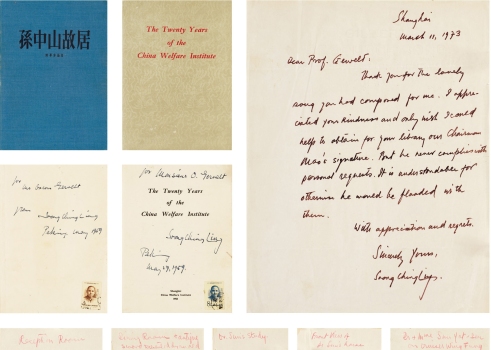 孫中山故居
The Twenty Years
of the
China Welfare Institute
Shanghai
March 11, 1973
Dear Prof. Gewelt.
Thank you for the lovely
song you had composed for me. I appre-
ciated your kindness and only wish I could
help to obtain for your library our Chairman
Mao's signature. But he never complies with
personal requests. It is understandable for
otherwise he would be flooded with
them.
With appreciation and regrets.
Sincerely Yours,
Soong Ching Ling.
for
Gewelt
from
Soong Ching Ling
Peking, May 1959
for Monsieur D. Gewelt
The Twenty Years
of the
China Welfare Institute
Soong Ching Ling
Peking
May 29, 1959.
Shanghai
China Welfare Institute
Reception Room
Dr. Sun's Study